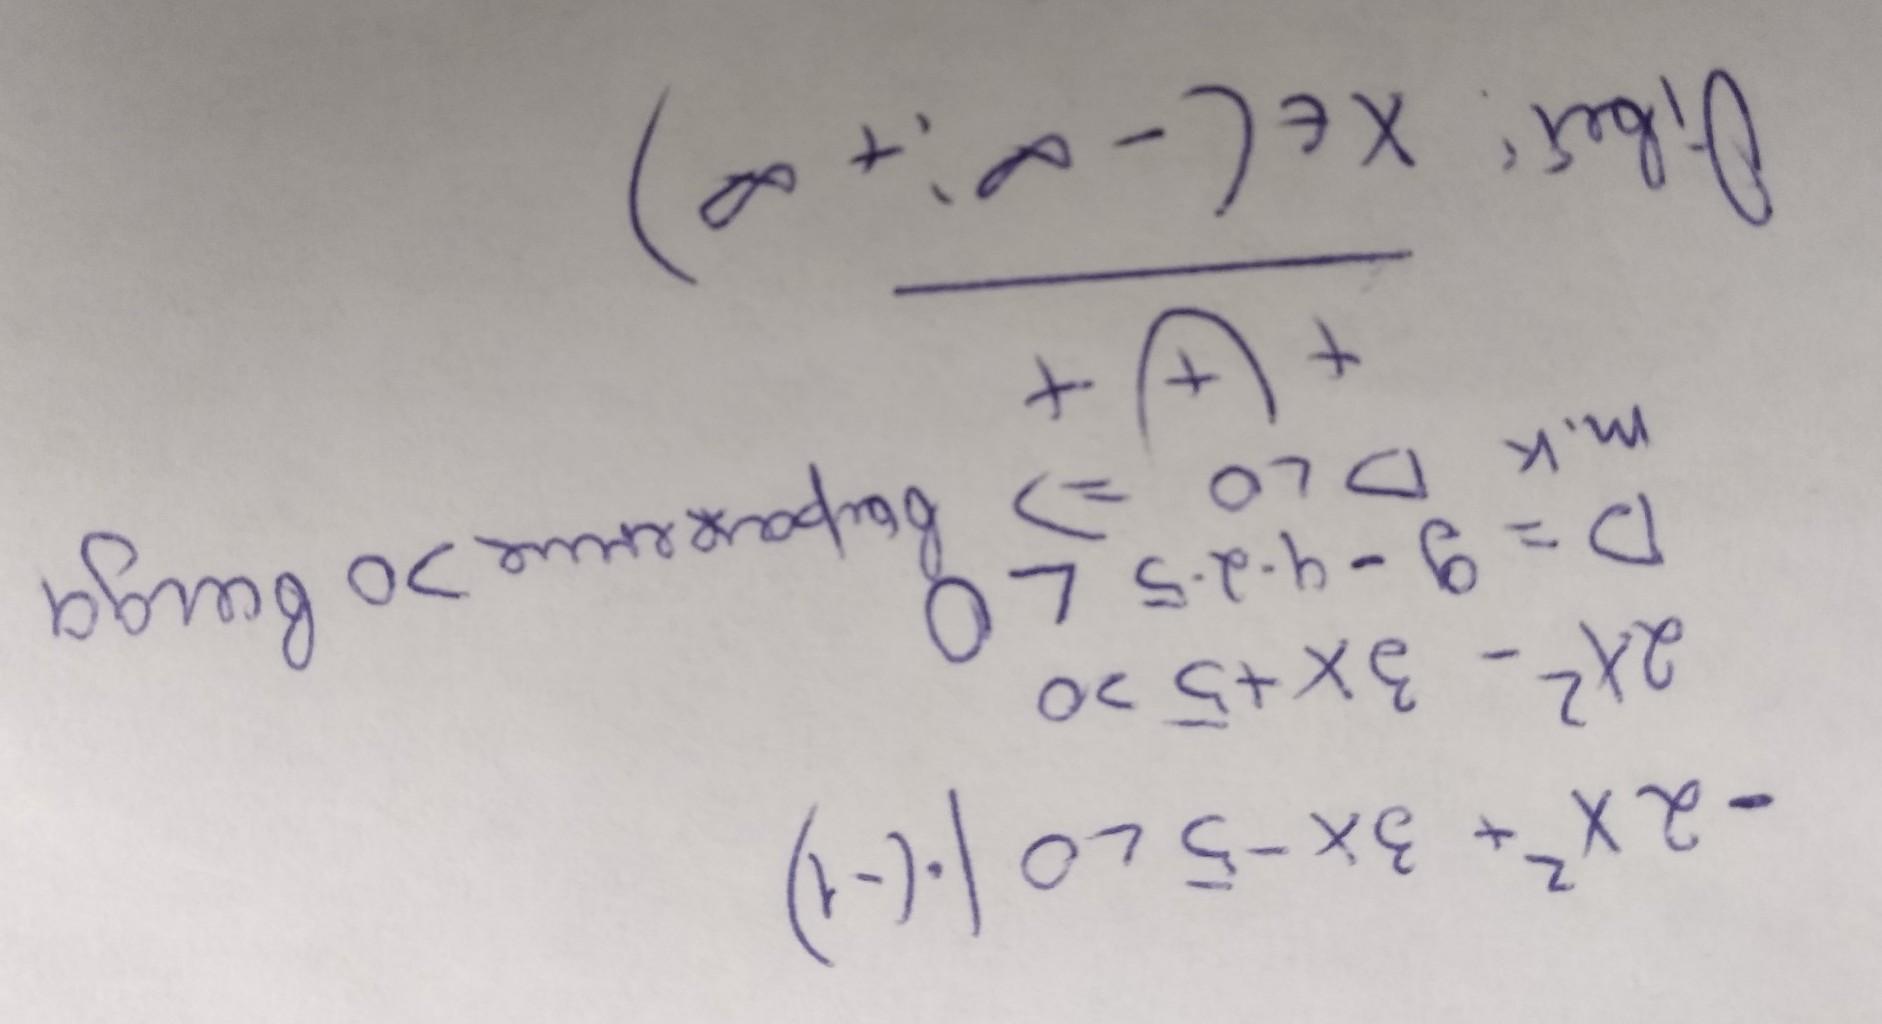 -2x² + 3x - 5 < 0 | ·(-1)
2x² - 3x + 5 > 0
D = 9 - 4·2·5 < 0
т.к D < 0 => выражение > 0 всегда
+ + +
Ответ: x ∈ (-∞; +∞)